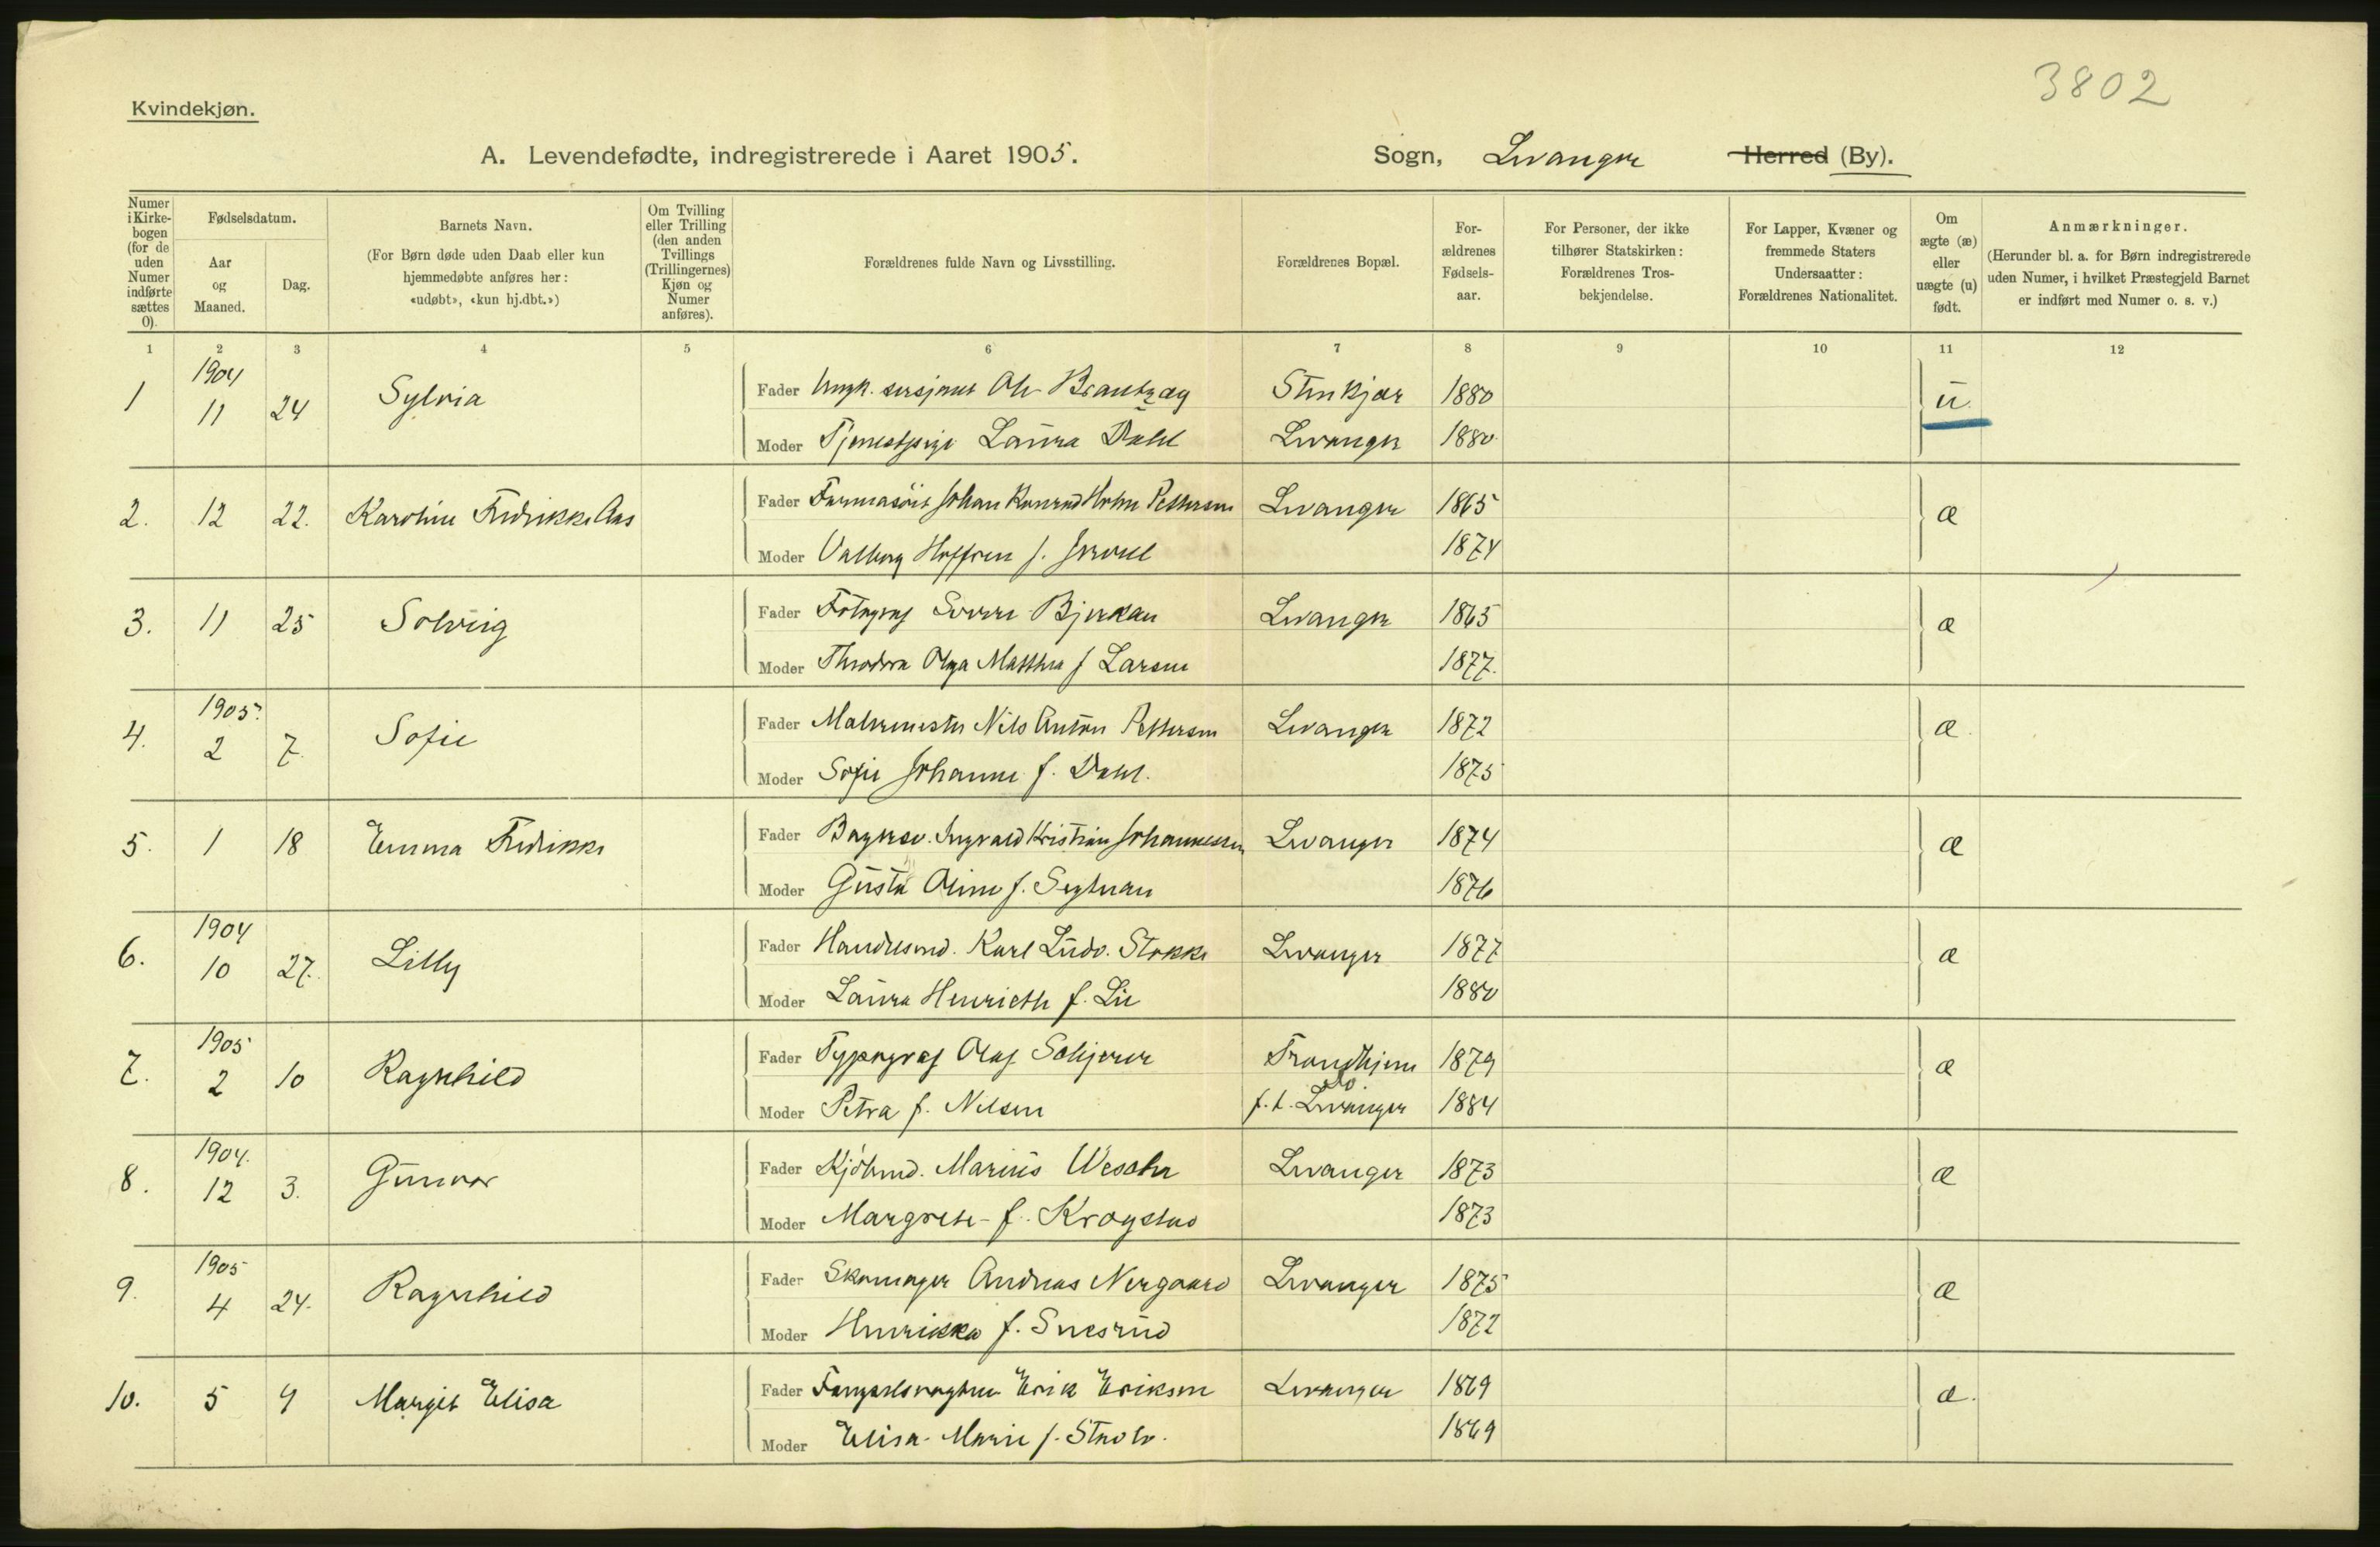 3802
Kvindekjøn.
A. Levendefødte, indregistrerede i Aaret 1905. Sogn, Levanger Herred (By).
Numer
i Kirke-
bogen
(for de
uden
Numer
indførte
sættes
0).
Fødselsdatum.
Aar
og
Maaned.
Dag.
Barnets Navn.
(For Børn døde uden Daab eller kun
hjemmedøbte anføres her:
«udøbt», «kun hj.dbt.»)
Om Tvilling
eller Trilling
(den anden
Tvillings
(Trillingernes)
Kjøn og
Numer
anføres).
Forældrenes fulde Navn og Livsstilling.
Forældrenes Bopæl.
For-
ældrenes
Fødsels-
aar.
For Personer, der ikke
tilhører Statskirken:
Forældrenes Tros-
bekjendelse.
For Lapper, Kvæner og
fremmede Staters
Undersaatter:
Forældrenes Nationalitet.
Om
ægte (æ)
eller
uægte (u)
født.
Anmærkninger.
(Herunder bl. a. for Børn indregistrerede
uden Numer, i hvilket Præstegjeld Barnet
er indført med Numer o. s. v.)
1 2 3 4 5 6 7 8 9 10 11 12
1904
1 11 24 Sylvia Fader Ungk. sersjant Ole Brautzæg Stenkjær 1880 u.
Moder Tjenestpige Laura Dahl Levanger 1880
2. 12 22. Karoline Fredrikke Aas Fader Farmasöit Johan Konrad Holm Pettersen Levanger 1865 æ
Moder Valborg Hoffren f. 1874
3. 11 25 Solveig Fader Fotograf Sverre Bjerkan Levanger 1865 æ
Moder Theodora Olga Matthea f Larsen 1877.
1905.
4. 2 7. Sofie Fader Malermester Nils Anton Pettersen Levanger 1872 æ.
Moder Sofie Johanne f. Dahl. 1875
5. 1 18 Emma Fredrikke Fader Bagersv. Ingvald Kristian Johannessen Levanger 1874 æ
Moder Gusta Oline f. Segtnan 1876
1904
6. 10 27. Lilly Fader Handlesmd. Karl Ludv. Stokke Levanger 1877 æ
Moder Laura Henriette f. Lie 1880
1905
7. 2 10 Ragnhild Fader Typograf Olaf Schjerve Trondhjem 1879 æ
do.
Moder Petra f. Nilsen f.t. Levanger 1884
1904.
8. 12 3. Gunvor Fader Kjöbmd. Marius Wessler Levanger 1873 æ
Moder Margrete f. Krogstad 1873
1905
9. 4 24. Ragnhild Fader Skomager Andreas Nergaard Levanger 1875 æ
Moder Henrikka f. Snesrud 1872
10. 5 4 Margit Elisa Fader Fængselsvagtm Erik Eriksen Levanger 1869 æ.
Moder Elisa Marie f. 1869